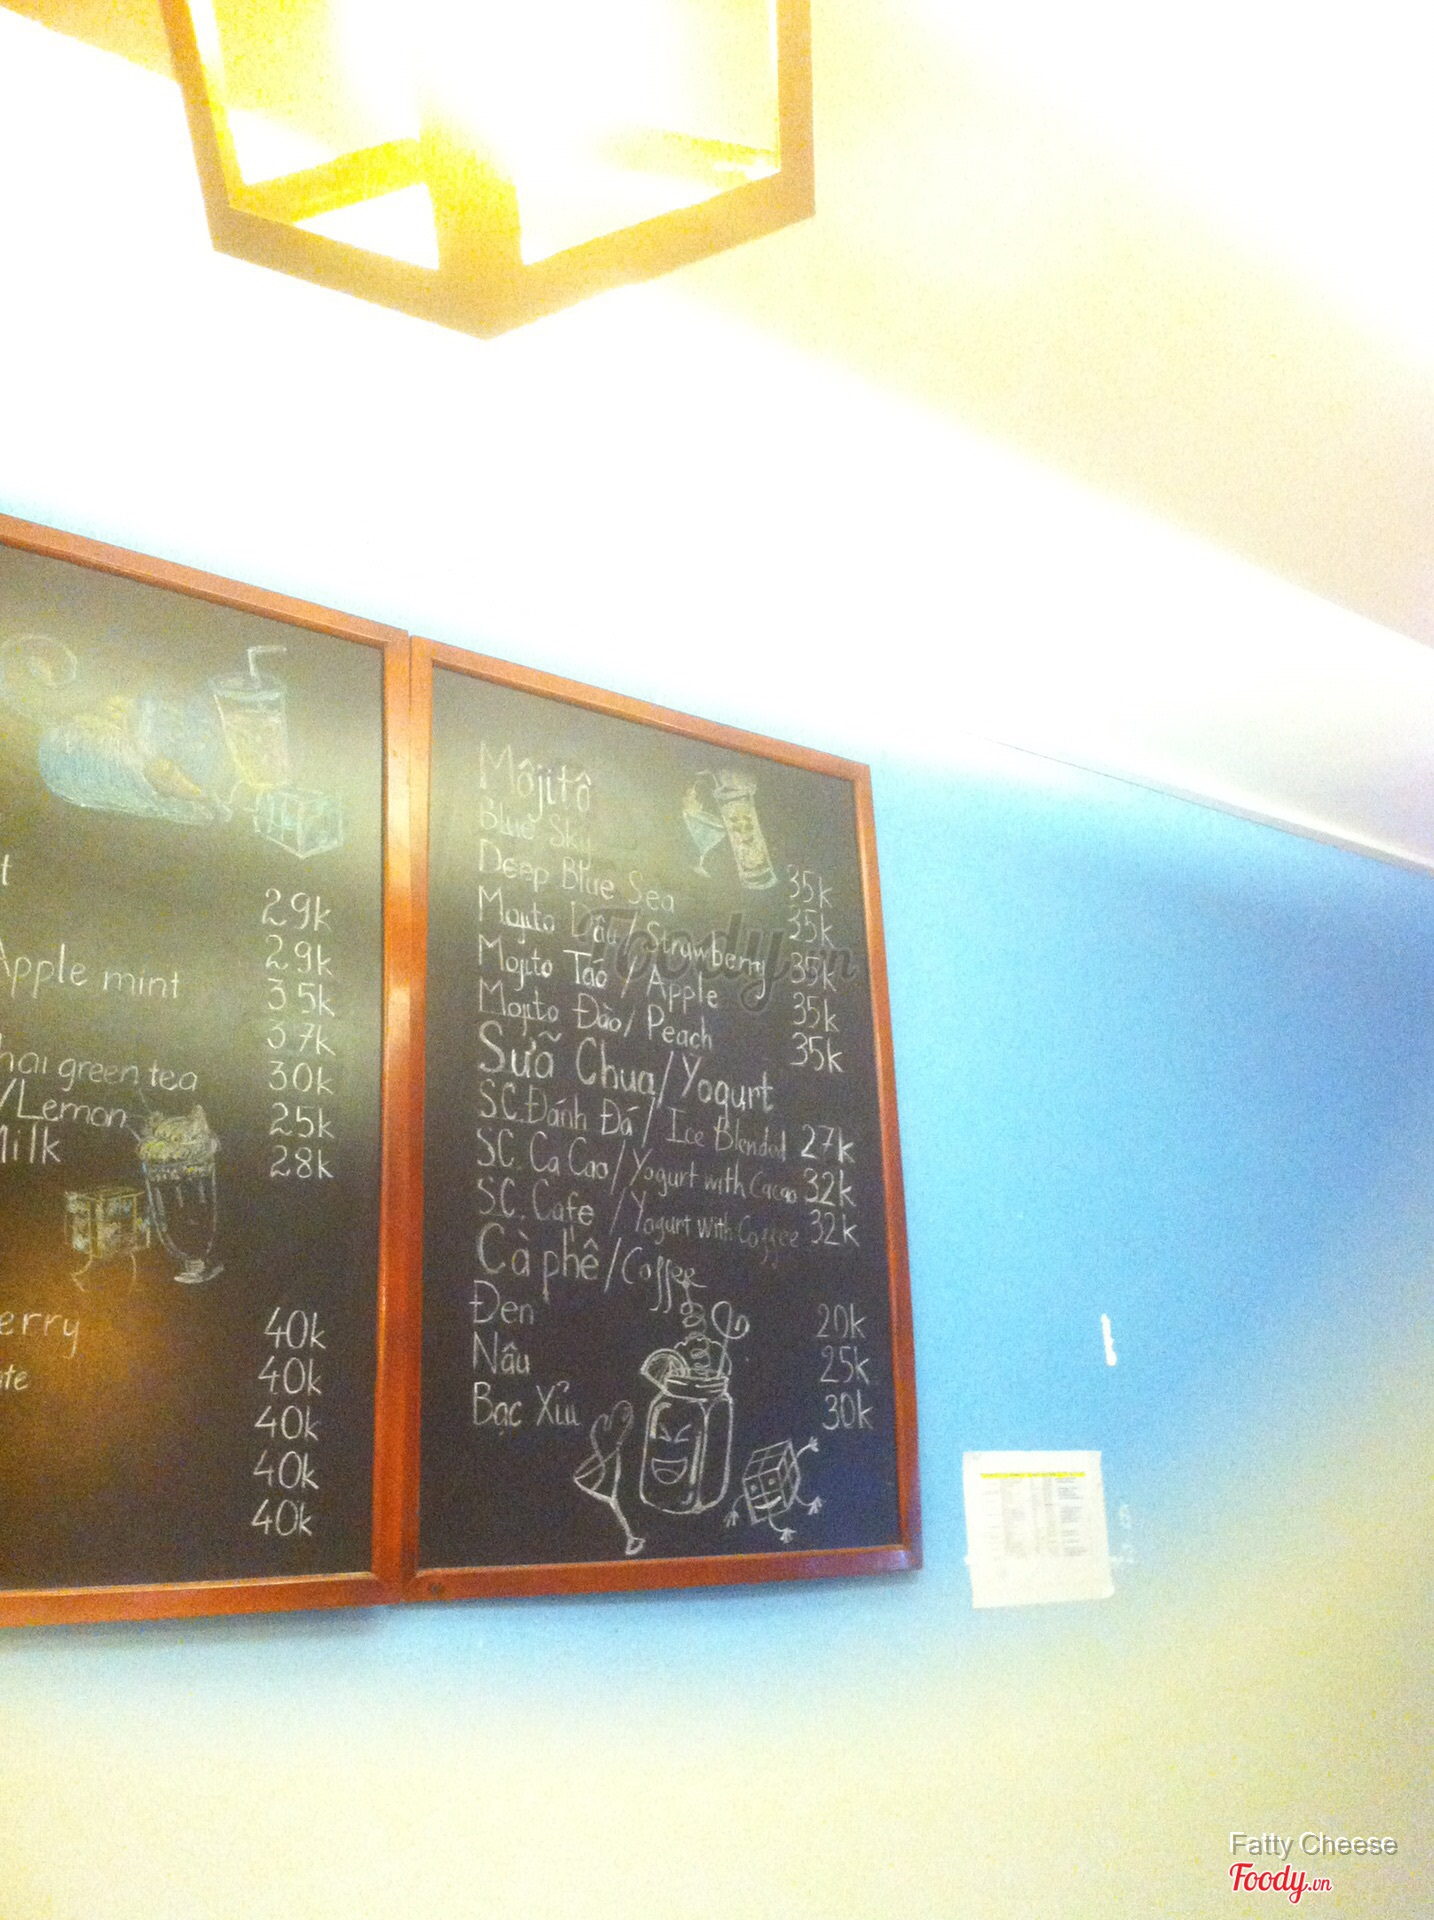 t
29k
29k
Apple mint 35k
37k
hai green tea 30k
/Lemon 25k
Milk 28k
erry 40k
ate 40k
40k
40k
40k
Môjitô
Blue Sky 35k
Deep Blue Sea 35k
Mojito Dâu/Strawberry 35k
Mojito Táo/Apple 35k
Mojito Đào/Peach 35k
Sữa Chua/Yogurt
S.C. Đánh Đá/Ice Blended 27k
S.C. Ca Cao/Yogurt with Cacao 32k
S.C. Cafe/Yogurt with Coffee 32k
Cà phê/Coffee
Đen 20k
Nâu 25k
Bạc Xỉu 30k
Foody.vn
Fatty Cheese
Foody.vn